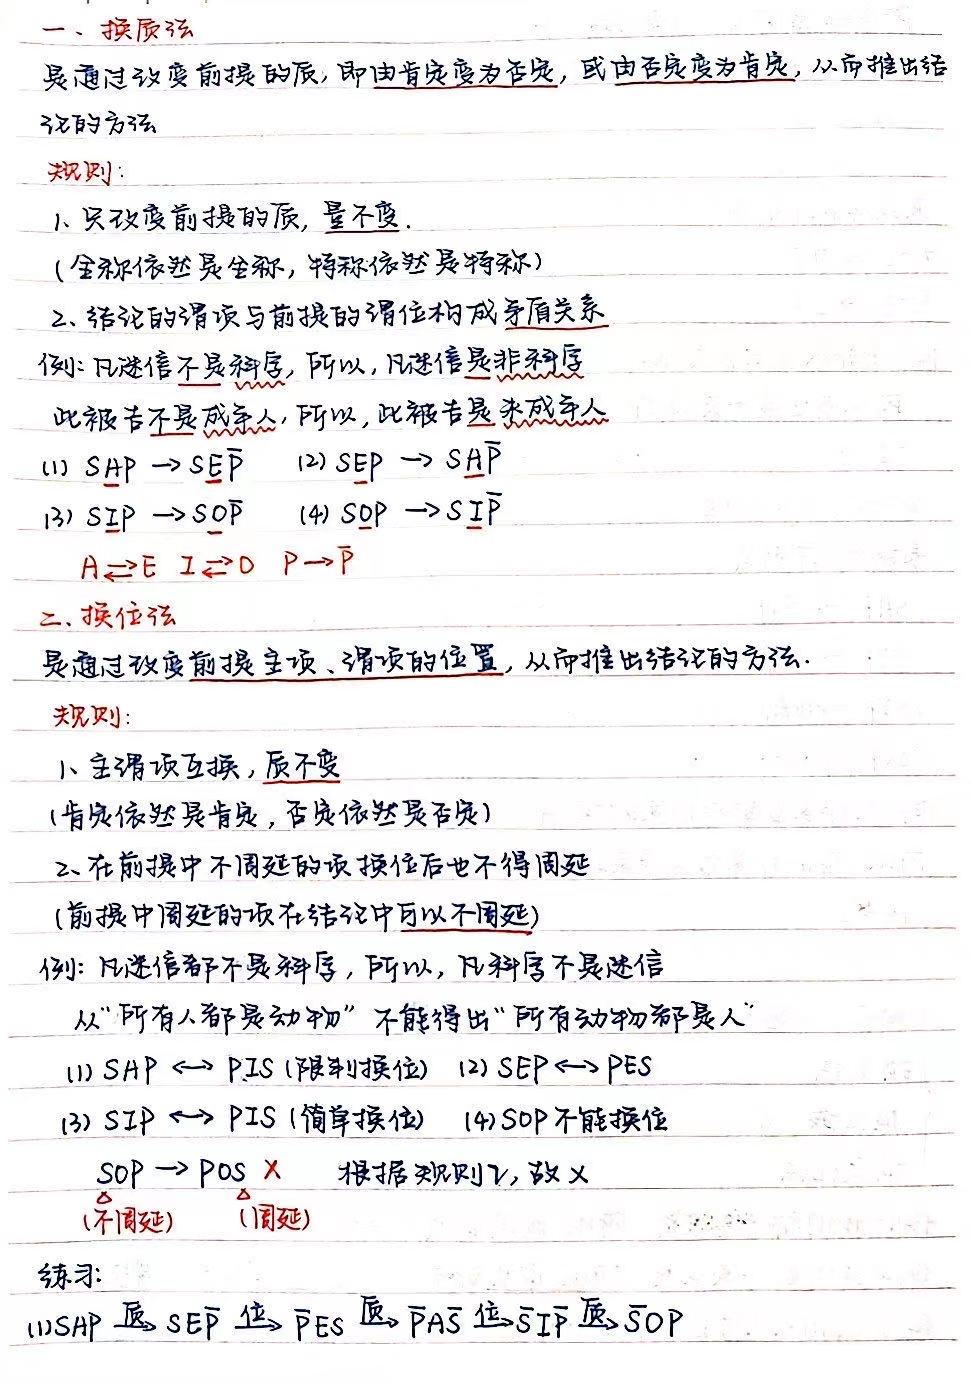 一、换质法
是通过改变前提的质,即由肯定变为否定,或由否定变为肯定,从而推出结
论的方法
规则:
1、只改变前提的质,量不变.
(全称依然是全称,特称依然是特称)
2、结论的谓项与前提的谓位构成矛盾关系
例:凡迷信不是科学,所以,凡迷信是非科学
此被告不是成年人,所以,此被告是未成年人
(1) SAP → SEP̅ (2) SEP → SAP̅
(3) SIP → SOP̅ (4) SOP → SIP̅
A⇄E I⇄O P→P̅
二、换位法
是通过改变前提主项、谓项的位置,从而推出结论的方法.
规则:
1、主谓项互换,质不变
(肯定依然是肯定,否定依然是否定)
2、在前提中不周延的项换位后也不得周延
(前提中周延的项在结论中可以不周延)
例:凡迷信都不是科学,所以,凡科学不是迷信
从“所有人都是动物”不能得出“所有动物都是人”
(1) SAP ↔ PIS (限制换位) (2) SEP ↔ PES
(3) SIP ↔ PIS (简单换位) (4) SOP不能换位
SOP → POS X 根据规则2,故X
(不周延) (周延)
练习:
(1) SAP 质→ SEP̅ 位→ P̅ES 质→ P̅AS̅ 位→ S̅IP̅ 质→ S̅OP